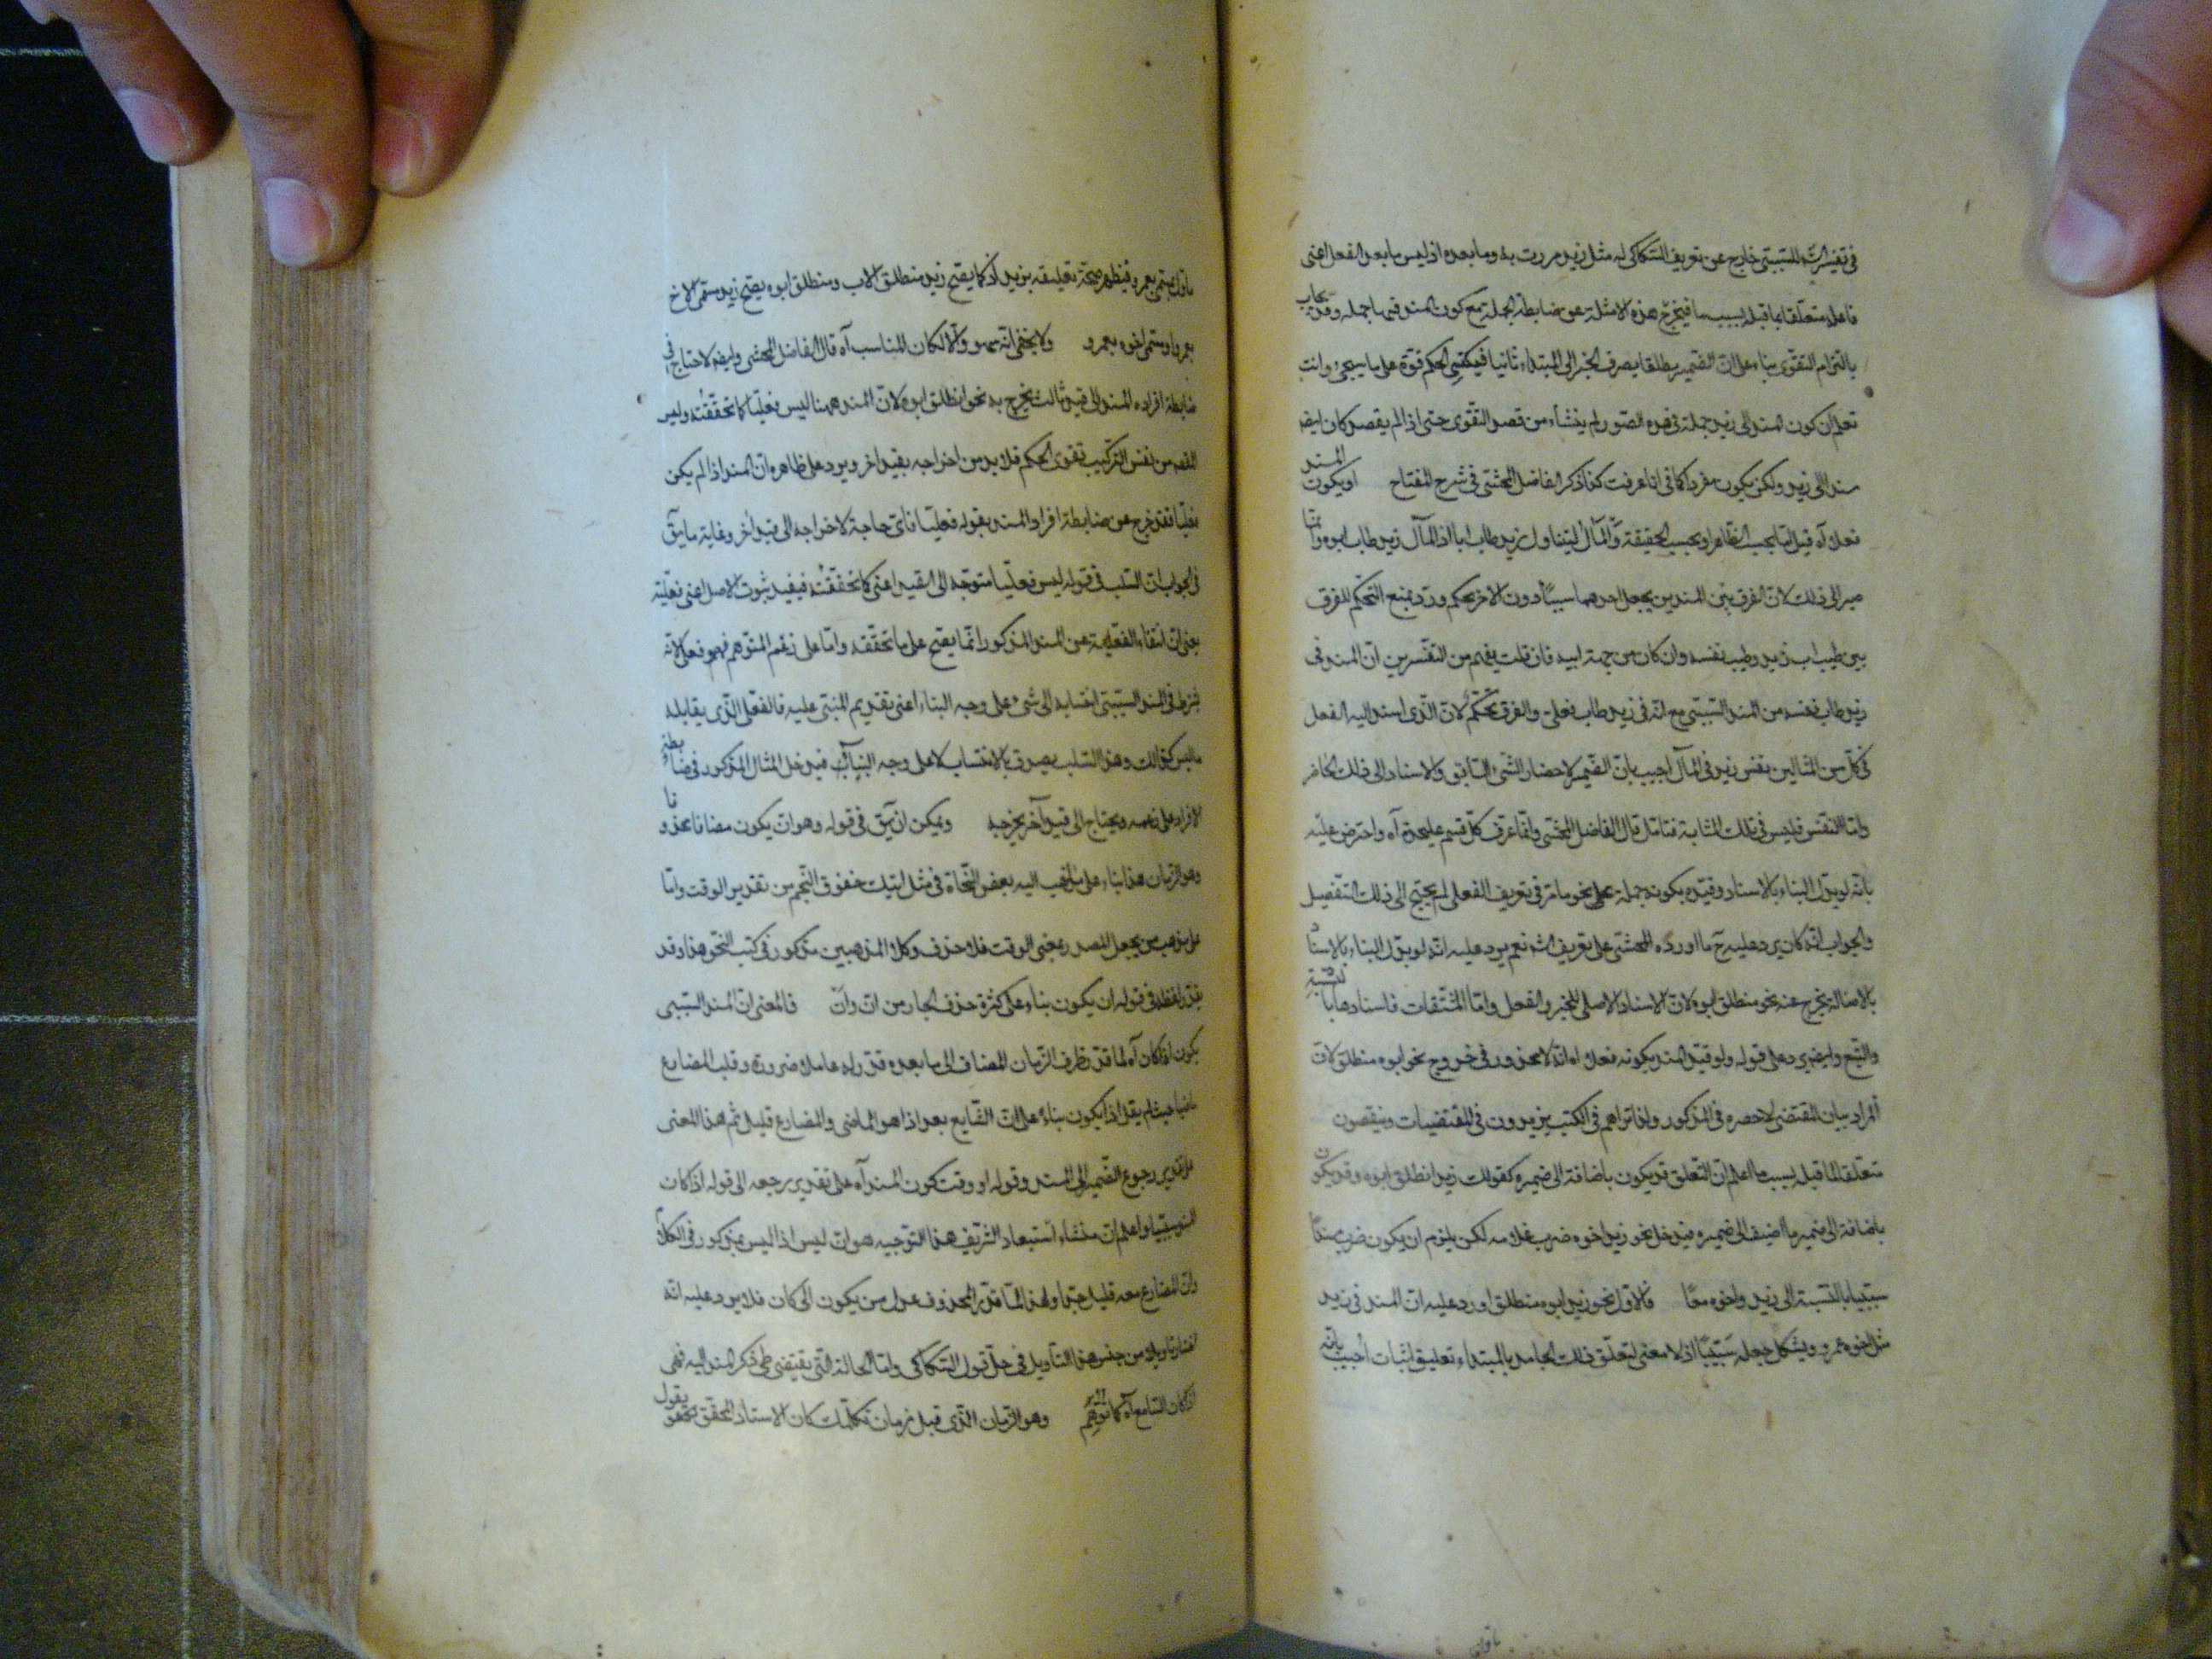 في تفسير الشه للسببي خارج عن تعريف السكاكي له مثل زيد مررت به وما بعده اذ ليس ما بعد الفعل اعنى
فاعله متعلقا بما قبله بسبب ما فيخرج هذه الامثلة عن ضابطة الجملة مع كون المسند فيها جملة وقد يجاب
بالتزام التقوى بناء على ان الضمير مطلقا يصرف الخبر الى المبتداء ثانيا فيكتسى الحكم قوة على ما سيجئ وانت
تعلم ان كون المسند الى زيد جملة في هذه الصور لم ينشاء من قصد التقوى حتى اذا لم يقصد كان ايضا
مسندا الى زيد ولكن يكون مفردا كما في انا عرفت كذا ذكر الفاضل المحشى في شرح المفتاح او يكون المسند
فعلا آه قيل اما بحسب الظاهر او بحسب الحقيقة والمآل ليتناول زيد طاب ابا اذ المآل زيد طاب ابوه وانما
صير الى ذلك لان الفرق بين المسندين بجعل احدهما سببيا دون الاخر تحكم ورد بمنع التحكم للفرق
بين طيب اب زيد وطيب نفسه وان كان من جهة ابيه فان قلت يفهم من التفسيرين ان المسند في
زيد طاب نفسه من المسند السببي مع انه في زيد طاب فعلي والفرق تحكم لان الذى اسند اليه الفعل
في كل من المثالين نفس زيد في المآل اجيب بان الضمير لاحضار الشئ السابق والاسناد الى ذلك الحاضر
واما النفس فليس في تلك المثابة فتامل قال الفاضل المحشى وانما عرف كل قسم عليحدة آه واعترض عليه
بانه لو بدل البناء بالاسناد وقيده بكونه جملة على نحو ما مر في تعريف الفعلى لم يحتج الى ذلك التفصيل
والجواب انه كان يرد عليه ح ما اورده المحشى على تعريف الشه نعم يرد عليه انه لو بدل البناء بالاسناد
بالاصالة يخرج عنه نحو منطلق ابوه لان الاسناد الاصلي للخبر والفعل واما المشتقات فاسنادها بالنسبة
والتبع وايضا يرد على قوله ولو قيد المسند بكونه فعلا آه انه لا محذور في خروج نحو ابوه منطلق لان
المراد بيان المقتضى لا حصره في المذكور ولذا تراهم في الكتب يزيدون في المقتضيات وينقصون
متعلقا لما قبله بسبب ما اعلم ان التعلق قد يكون باضافة الى ضميره كقولك زيد انطلق ابوه وقد يكون
باضافة الى ضمير ما اضيف الى ضميره فيدخل نحو زيد اخوه ضرب غلامه لكن يلزم ان يكون ضرب مسندا
سببيا بالنسبة الى زيد واخوه معا فالاول نحو زيد ابوه منطلق اورد عليه ان المسند في زيد
مثل اخوه عمرو ويشكل جعله سببيا اذ لا معنى لتعلق ذلك الجامد بالمبتداء تعليق اثبات اجيب بانه
ماول بمسمى بعمرو فيظهر صحة تعليقه بزيد اذ كما يصح زيد منطلق الاب ومنطلق ابوه يصح زيد مسمى الاخ
بعمرو او مسمى اخوه بعمرو ولا يخفى انه سهو والا لكان المناسب آه قال الفاضل المحشى وايضا لاحتاج في
ضابطة افراده المسند الى قيد ثالث يخرج به نحو انطلق ابوه لان المسند ههنا ليس فعليا كما تحققته وليس
القصد من نفس التركيب تقوى الحكم فلا بد من اخراجه بقيد اخر ويرد على ظاهره ان المسند اذا لم يكن
فعليا فقد خرج عن ضابطة افراد المسند بقوله فعليا فاى حاجة لاخراجه الى قيد آخر وغاية ما يق
في الجواب ان السلب في قوله ليس فعليا متوجه الى القيد اعنى كما تحققته فيفيد ثبوت الاصل اعنى فعليته
يعنى ان انتفاء الفعلية عن المسند المذكور انما يصح على ما تحققته واما على زعم المتوهم فهو فعلى لانه
شرط في المسند السببي انتسابه الى شئ على وجه البناء اعنى تقديم المبنى عليه فالفعلى الذى يقابله
ما ليس كذلك وهذا السلب يصدق بالانتساب لا على وجه البناء فيدخل المثال المذكور في ضابطة
الافراد على زعمه ويحتاج الى قيد آخر يخرجه ويمكن ان يق في قوله وهو ان يكون مضافا محذوفا
وهو الزمان هذا بناء على ما ذهب اليه بعض النحاة في مثل اتيك خفوق النجم من تقدير الوقت واما
على مذهب من يجعل المصدر بمعنى الوقت فلا حذف وكلا المذهبين مذكور في كتب النحو هذا وقد
يقدر لفظة في قوله ان يكون بناء على كثرة حذف الجار من ان وانّ فالمعنى ان المسند السببى
يكون اذا كان آه لما قدر ظرف الزمان المضاف الى ما بعده قدر له عاملا ضرورة وقلب المضارع
ماضيا حيث لم يقل اذا يكون بناء على ان الشايع بعد اذا هو الماضى والمضارع قليل ثم هذا المعنى
على تقدير رجوع الضمير الى المسند وقوله او وقت كون المسند آه على تقدير رجعه الى قوله اذ كان
المسند سببيا واعلم ان منشاء استبعاد الشريف هذا التوجيه هو ان ليس اذا ليس بمذكور في الكلام
وان المضارع معه قليل جدا ولهذا لما قدر المحذوف عدل من يكون الى كان فلا يرد عليه انه
اختار تاويلا من جنس هذا التأويل في حل قول السكاكى واما الحالة التى يقتضى طى ذكر المسند اليه فهى
اذا كان السامع آه كما توهم وهو الزمان الذى قبل زمان تكلمك كان الاستاذ المحقق يقول